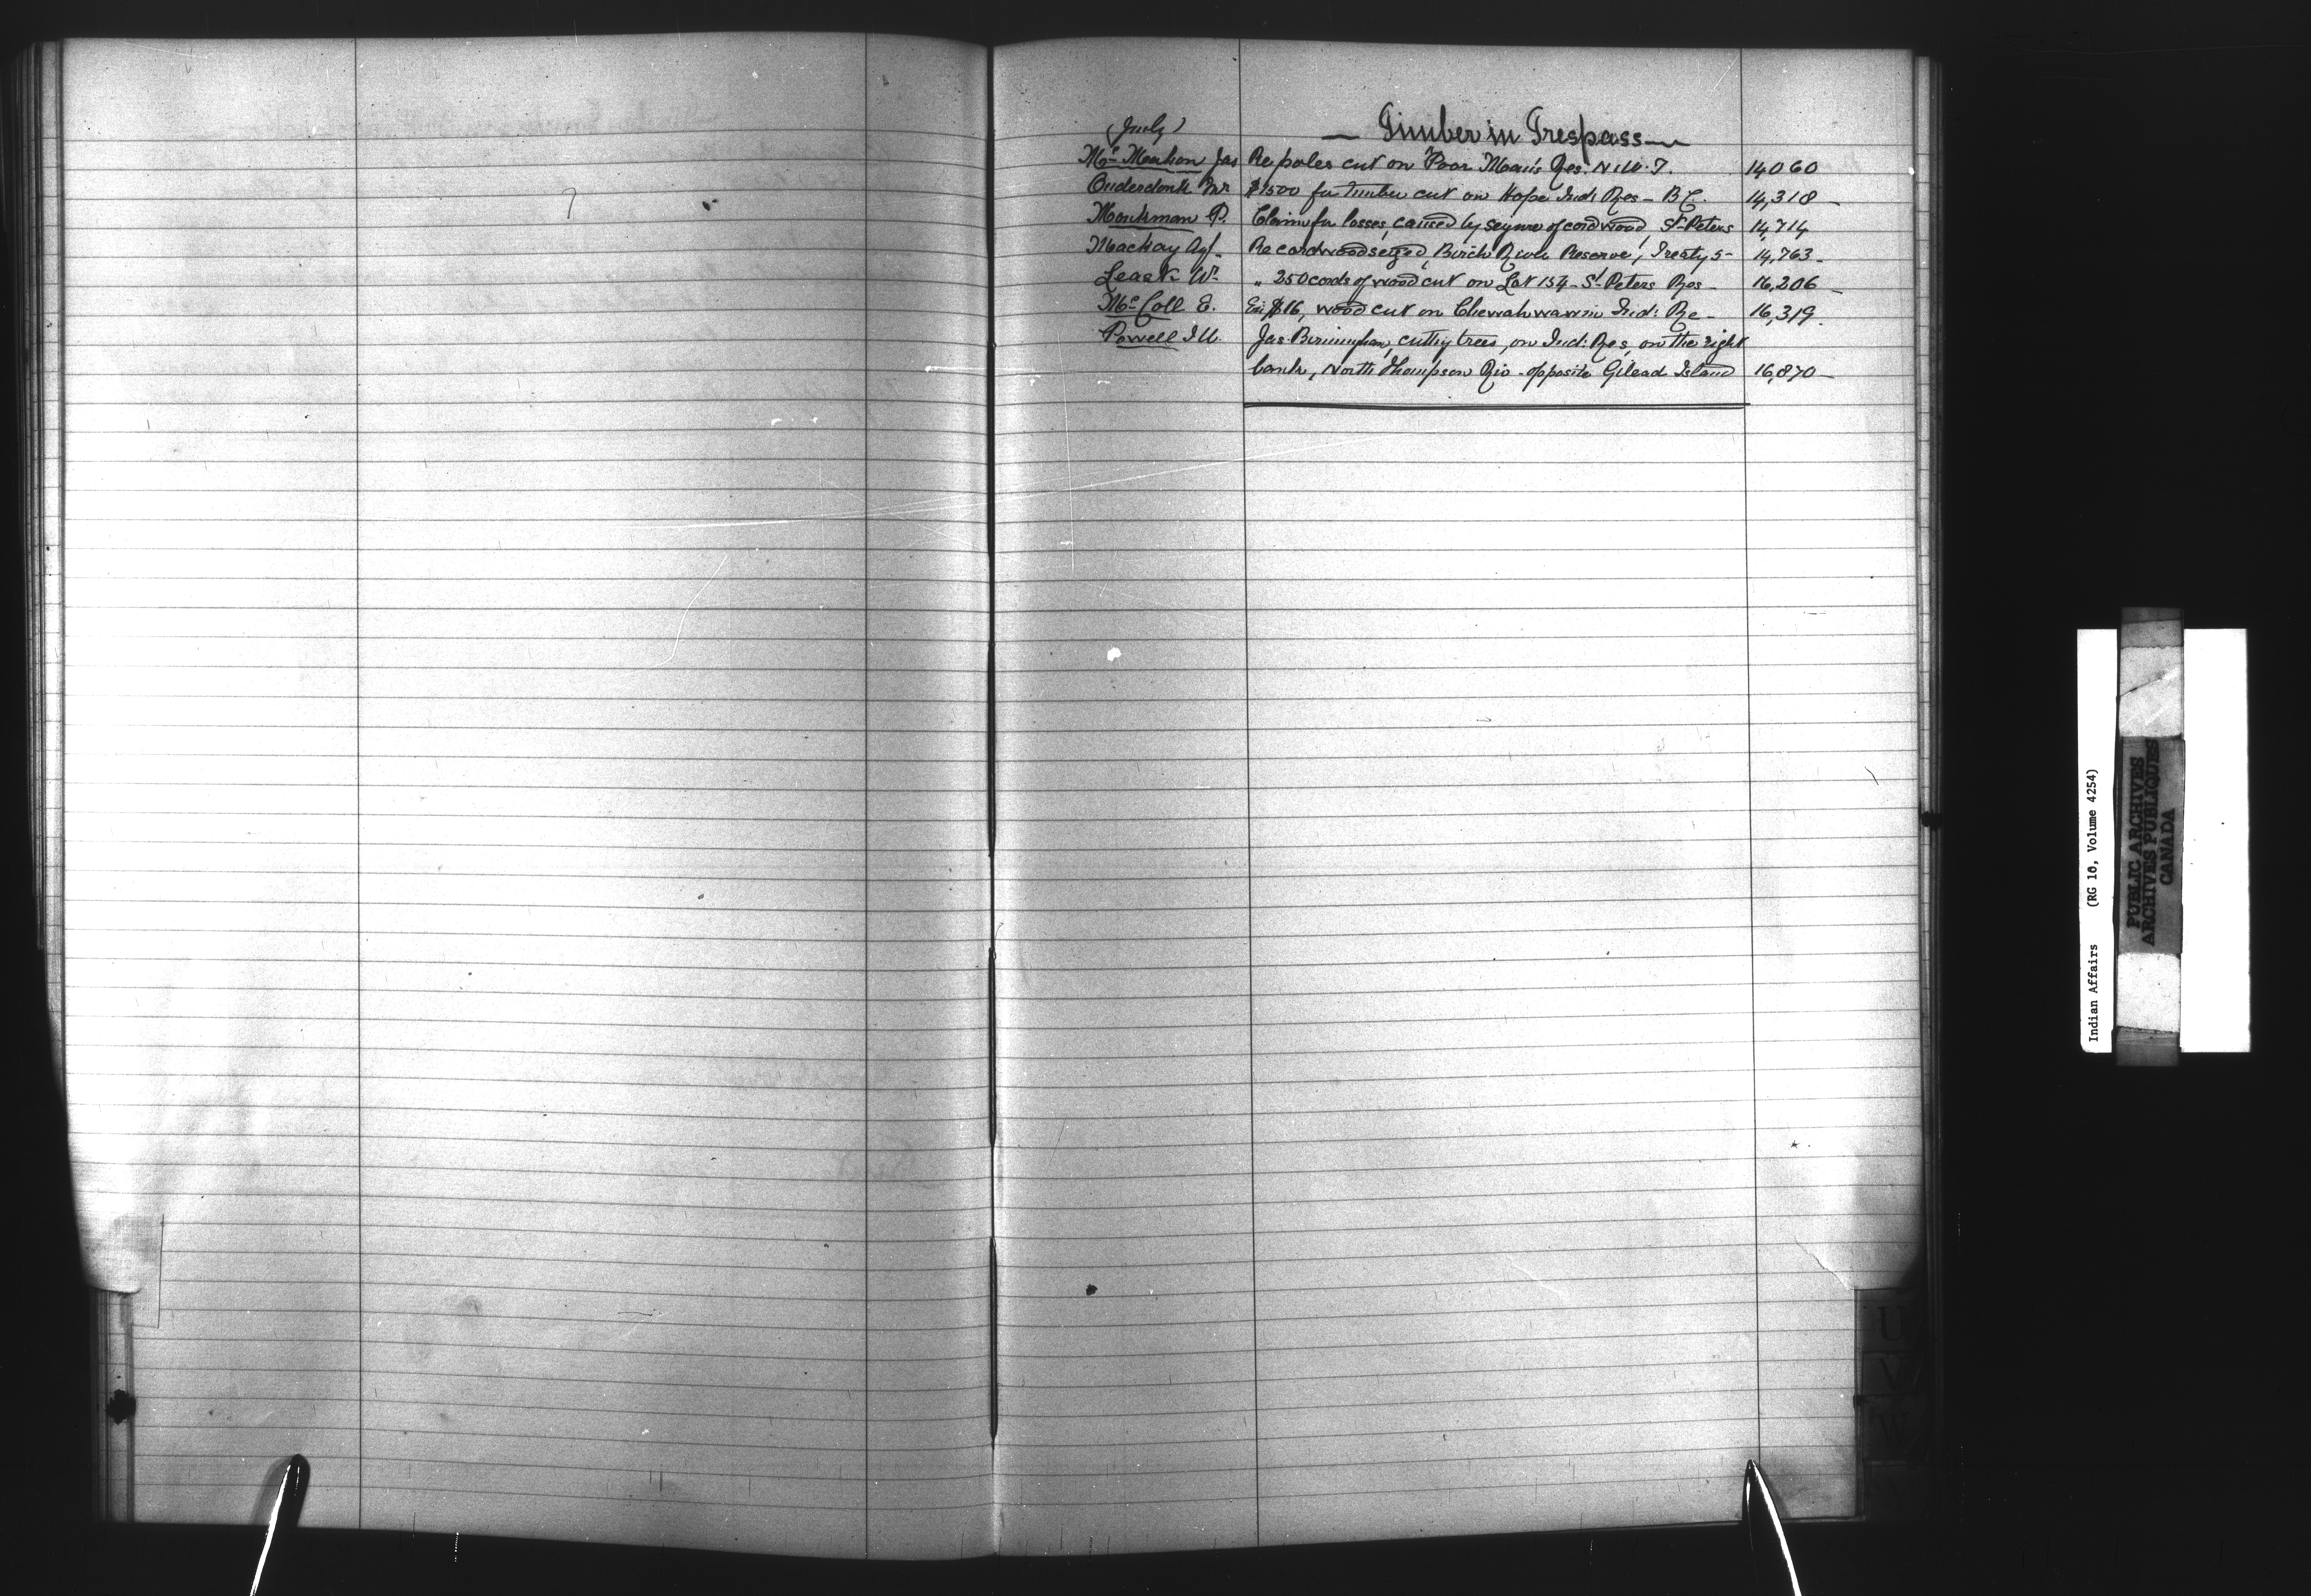 (July)
— Timber in Trespass —
Mc Mahon Jas Re poles cut on Poor Man's Res: N.W.T. 14060
Onderdonk Mr $1500 for timber cut on Hope Ind: Res - B.C. 14,318 -
Monkman P. Claim for losses, caused by seizure of cordwood, St Peters 14,714
Mackay Agt. Re cordwood seized, Birch River Reserve, Treaty 5 - 14,763 -
Leask W. " 250 cords of wood cut on Lot 154 - St Peters Res - 16,206 -
Mc Coll E. $16, wood cut on Ind: Re - 16,319.
Powell I W. Jas. Birmingham, cutting trees, on Ind: Res, on the right
bank, North Thompson Riv - opposite Gilead Island 16,870 -
Indian Affairs (RG 10, Volume 4254)
PUBLIC ARCHIVES
ARCHIVES PUBLIQUES
CANADA
U
V
W